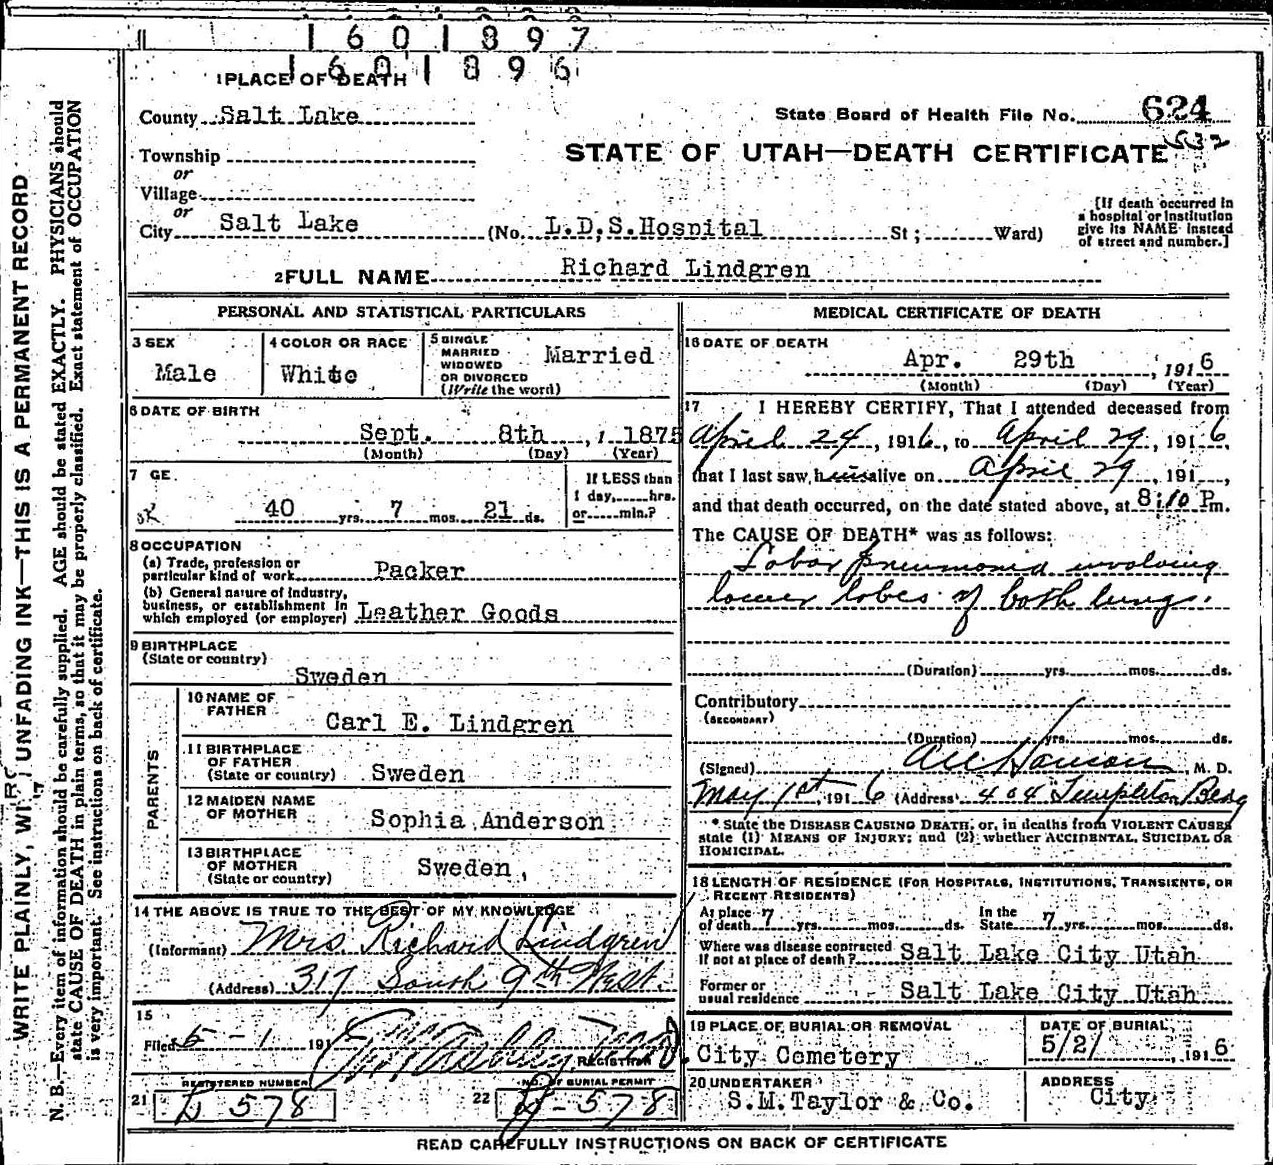 1601897
1601896
1 PLACE OF DEATH
County Salt Lake
State Board of Health File No. 624
532
Township
or
STATE OF UTAH—DEATH CERTIFICATE
Village
or
City Salt Lake (No. L.D.S.Hospital St; Ward)
[If death occurred in
a hospital or institution
give its NAME instead
of street and number.]
2 FULL NAME Richard Lindgren
PERSONAL AND STATISTICAL PARTICULARS
3 SEX
Male
4 COLOR OR RACE
White
5 SINGLE
MARRIED
WIDOWED
OR DIVORCED
(Write the word)
Married
6 DATE OF BIRTH
Sept. 8th, 1875
(Month) (Day) (Year)
7 GE
40 yrs. 7 mos. 21 ds.
If LESS than
1 day, hrs.
or min.?
8 OCCUPATION
(a) Trade, profession or
particular kind of work Packer
(b) General nature of industry,
business, or establishment in
which employed (or employer) Leather Goods
9 BIRTHPLACE
(State or country)
Sweden
PARENTS
10 NAME OF
FATHER
Carl E. Lindgren
11 BIRTHPLACE
OF FATHER
(State or country) Sweden
12 MAIDEN NAME
OF MOTHER
Sophia Anderson
13 BIRTHPLACE
OF MOTHER
(State or country)
Sweden,
14 THE ABOVE IS TRUE TO THE BEST OF MY KNOWLEDGE
(Informant) Mrs. Richard Lindgren
(Address) 317 South 9th West.
15
Filed 5-1 191
REGISTRAR
REGISTERED NUMBER
21 D 578
NO. OF BURIAL PERMIT
22 D-578
MEDICAL CERTIFICATE OF DEATH
16 DATE OF DEATH
Apr. 29th, 1916
(Month) (Day) (Year)
17 I HEREBY CERTIFY, That I attended deceased from
April 24, 1916, to April 29, 1916
that I last saw him alive on April 29, 191 ,
and that death occurred, on the date stated above, at 8:10 P.m.
The CAUSE OF DEATH* was as follows:
Lobar pneumonia involving
lower lobes of both lungs.
(Duration) yrs. mos. ds.
Contributory
(SECONDARY)
(Duration) yrs. mos. ds.
(Signed) M. D.
May 1st, 1916 (Address) 404 Templeton Bldg
* State the DISEASE CAUSING DEATH, or, in deaths from VIOLENT CAUSES
state (1) MEANS OF INJURY; and (2) whether ACCIDENTAL, SUICIDAL OR
HOMICIDAL.
18 LENGTH OF RESIDENCE (FOR HOSPITALS, INSTITUTIONS, TRANSIENTS, OR
RECENT RESIDENTS)
At place
of death 7 yrs. mos. ds.
In the
State 7 yrs. mos. ds.
Where was disease contracted
If not at place of death? Salt Lake City Utah
Former or
usual residence Salt Lake City Utah
19 PLACE OF BURIAL OR REMOVAL
City Cemetery
DATE OF BURIAL
5/2/, 1916
20 UNDERTAKER
S.M.Taylor & Co.
ADDRESS
City
READ CAREFULLY INSTRUCTIONS ON BACK OF CERTIFICATE
WRITE PLAINLY, WI UNFADING INK—THIS IS A PERMANENT RECORD
N. B.—Every item of information should be carefully supplied. AGE should be stated EXACTLY. PHYSICIANS should
state CAUSE OF DEATH in plain terms, so that it may be properly classified. Exact statement of OCCUPATION
is very important. See instructions on back of certificate.